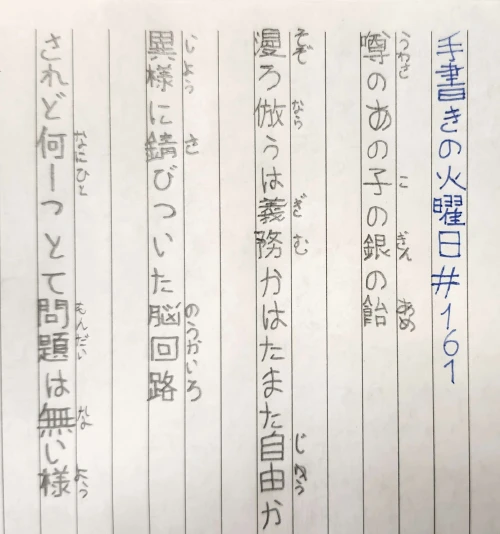 手書きの火曜日#161
うわさ こ ぎん あめ
噂のあの子の銀の飴
そぞ なら ぎ む じゆう
漫ろ倣うは義務かはたまた自由か
じよう さ のうかいろ
異様に錆びついた脳回路
なにひと もんだい な よう
されど何一つとて問題は無い様